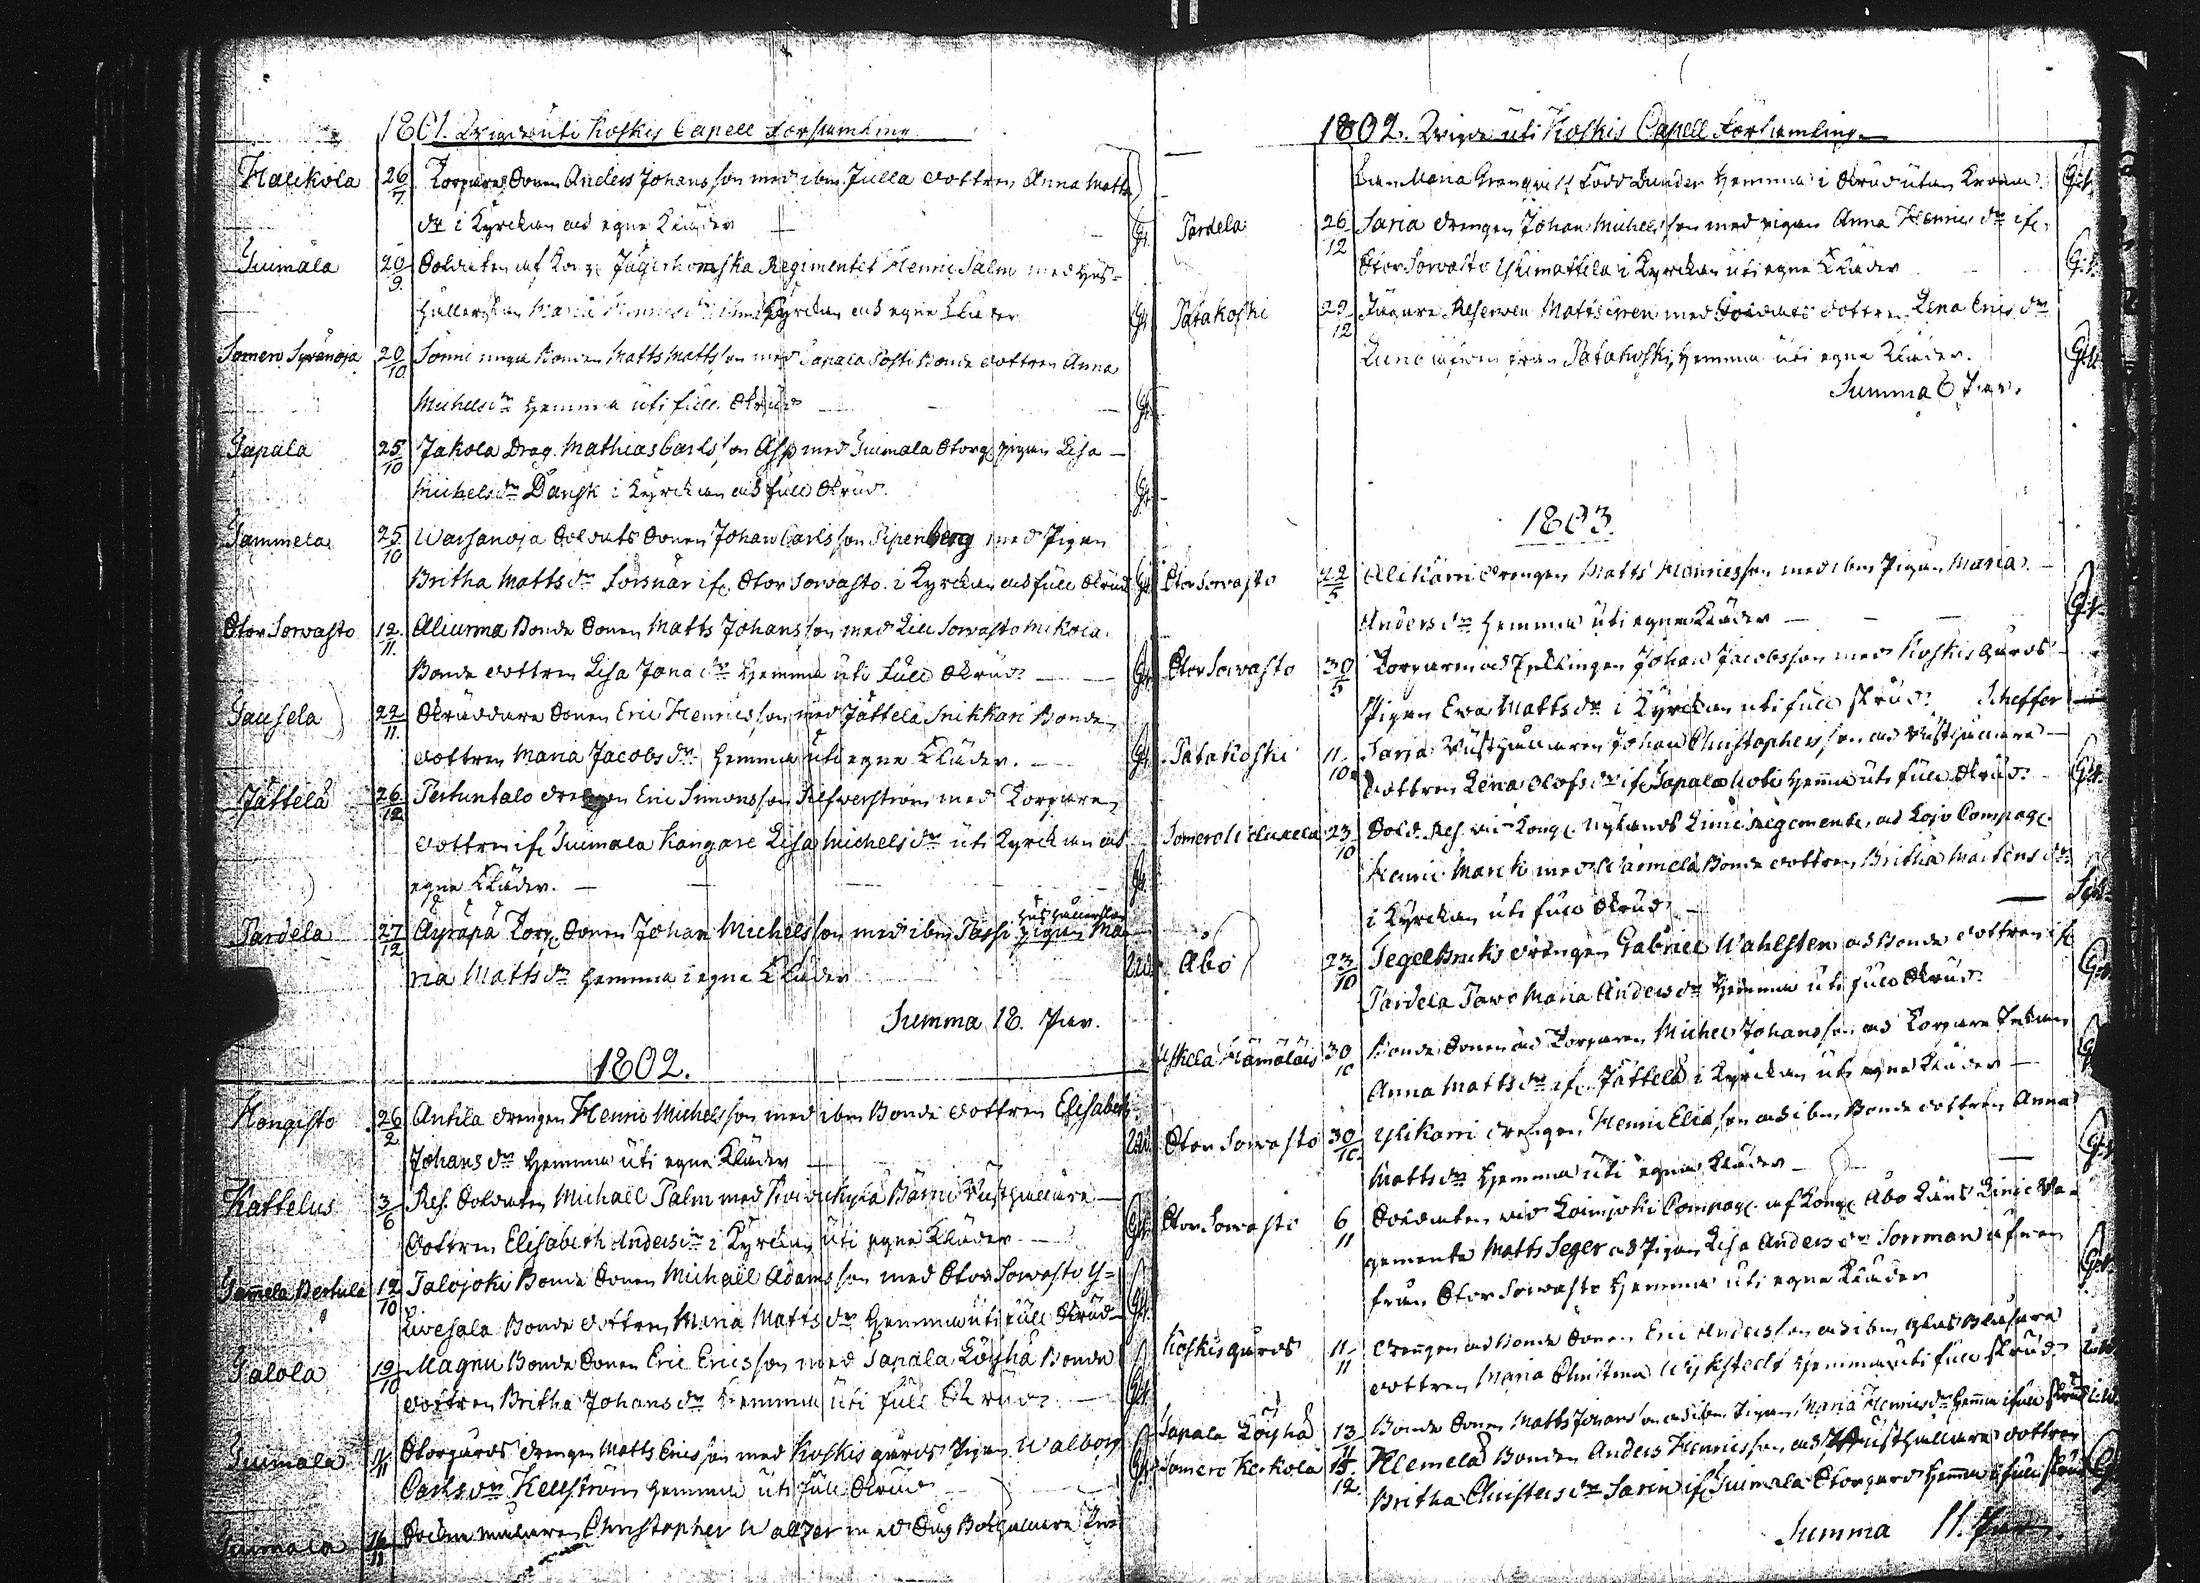 1801. Wigde uti Koskis Capell Församling
Haukola 26/7 Torpare Sonen Anders Johansson med ibm Julla dottren Anna Matts
dr i Kyrckan uti egne Kläder
Suimala 20/9 Soldaten af Kongl Jägerhornska Regimentet Henric Salm med Hus=
hållerskan Maria Henricsdr i Kyrckan uti egne Kläder
Somero Syvänoja 20/10 Sonni unga Bonden Matts Mattsson med Sapala Posti Bonde dottren Anna
Michelsdr hemma uti full Skrud
Tapala 25/10 Jakola Drag. Mathias Carlsson Asp med Suimala Storg. pigan Lisa
Michelsdr Dansk i Kyrckan uti full Skrud.
Tammela 25/10 Warsanoja Soldats Sonen Johan Carlsson Pipenberg med Pigan
Britha Mattsdr Forsnär ifr. Stor Sorvasto i Kyrckan uti full Skrud
Stor Sorvasto 12/11 Aliurma Bonde Sonen Matts Johansson med Lill Sorvasto Mikola
Bonde dottren Lisa Jonædr hemma uti full Skrud
Tausela 22/11 Skräddare Sonen Eric Henricsson med Jättelä Snikkari Bonde
dottren Maria Jacobsdr hemma uti egne Kläder.
Jättelä 26/12 Pertuntalo drengen Eric Simonsson Silfwerström med Torpare
dottren ifr Suimala Kangare Lisa Michelsdr uti Kyrckan uti
egne Kläder.
Pardela 27/12 Äyräpä Torp. Sonen Johan Michelsson med ibm Pässi hushållerskan pigan Ma
ria Mattsdr hemma i egne Kläder
Summa 18. Par.
1802.
Hongisto 26/2 Antila drengen Henric Michelsson med ibm Bonde dottren Elisabeth
Johansdr hemma uti egne Kläder
Kattelus 3/6 Res. Soldaten Michaël Palm med Rusthållare
dottren Elisabeth Andersdr i Kyrckan uti egne Kläder
Tammela Pertula 12/10 Talojoki Bonde Sonen Michaël Adamsson med Stor Sorvasto Y=
livesala Bonde dottren Maria Mattsdr hemma uti full Skrud
Talola 19/10 Magnu Bonde Sonen Eric Ericsson med Sapala Löyhä Bonde
dottren Britha Johansdr hemma uti full Skrud
Suimala 11/11 Storgårds drengen Matts Ericsson med Koskis gårds Pigan Walborg
Carlsdr Kellström hemma uti full Skrud
Suimala 16/11 Christopher Walzer med
1802. Wigde uti Koskis Capell Församling
Maria Granqvist född Dunder hemma i Skrud utan Krona
Pardela 26/12 Saria drengen Johan Michelsson med pigan Anna Henricsdr ifr.
Stor Sorvasto Ylimattila i Kyrckan uti egne Kläder
Patakoski 29/12 Jägare Reserven Matts Gren med Soldats dottren Lena Ericsdr
från Patakoski, hemma uti egne Kläder.
Summa 6 Par.
1803.
Stor Sorvasto 22/5 Alikärri drengen Matts Henricsson med ibm Pigan Maria
Andersdr hemma uti egna Kläder
Stor Sorvasto 30/5 Torparen ad Johan Jacobsson med Koskis gårds
Pigan Ewa Mattsdr i Kyrckan uti full skrud Scheffer
Patakoski 11/10 Saria Rusthållaren Johan Christophersson ad Rusthållare
dottren Lena Olofsdr ifr Sapala Hobi hemma uti full Skrud
Somero 23/10 Sold. Res. vid Kongl. Nylands Linie Regemente, ad Lojo Compagn.
Henric March med Bonde dottren Britha Mårtensdr
i Kyrckan uti full Skrud
Åbo 23/10 Tegelbruks drängen Gabriel Wahlsten ad Bonde dottren ifr
Pardela Pawo Maria Andersdr hemma uti full Skrud
Uskela Hämäläis 30/10 Bonde Sonen ad Torparen Michel Johansson ad Torpare
Anna Mattsdr ifr. Jättelä i Kyrckan uti egna Kläder
Stor Sorvasto 30/10 Ylikärri drengen Henric Eliasson ad ibm Bonde dottren Anna
Mattsdr hemma uti egna Kläder
Stor Sorvasto 6/11 Soldaten vid Loimjoki Compagn. af Kongl. Åbo Läns Linie Re-
gemente Matts Seger ad Pigan Lisa Andersdr Sorrman
från Stor Sorvasto hemma uti egna Kläder
Koskis gård 11/11 Drengen ad Bonde Sonen Eric Andersson ad ibm glas Blåsare
dottren Maria Christina Wijkstedt hemma uti full skrud
Sapala Löyhä 13/11 Bonde Sonen Matts Johansson ad ibm Pigan Maria Henricsdr hemma i full skrud
Somero Kerkola 18/12 Klemelä Bonden Anders Henricsson ad Rusthållare dottren
Britha Christersdr Sarin ifr Suimala Storgård hemma i full skrud
Summa 11. Par.